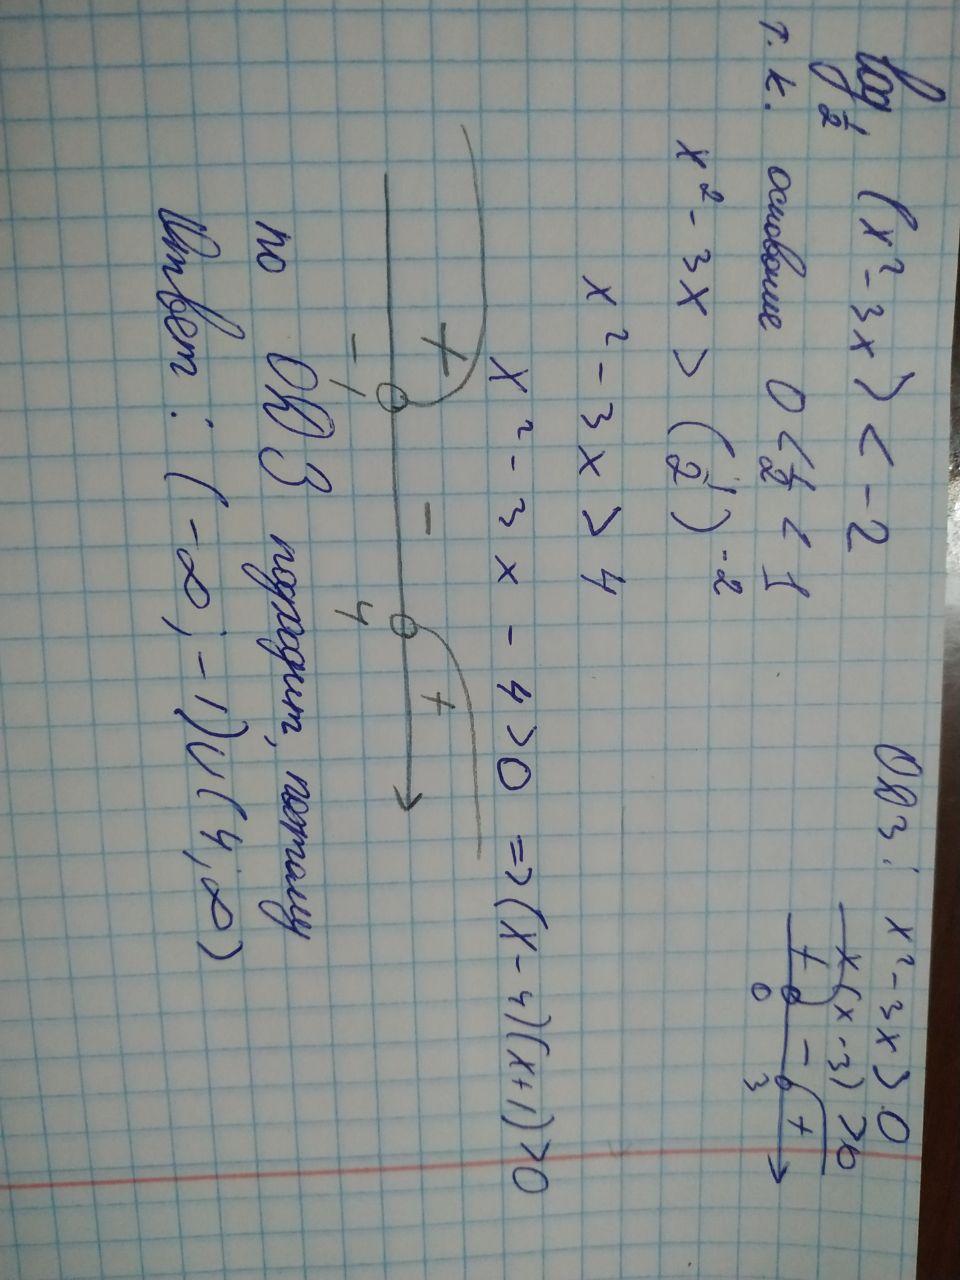 log 1/2 (x² - 3x) < -2
ОДЗ: x² - 3x > 0
x(x - 3) > 0
+ - +
0 3
т.к. основание 0 < 1/2 < 1
x² - 3x > (1/2)⁻²
x² - 3x > 4
x² - 3x - 4 > 0 => (x - 4)(x + 1) > 0
+ - +
-1 4
по ОДЗ подходит, потому
Ответ: (-∞; -1) ∪ (4; ∞)